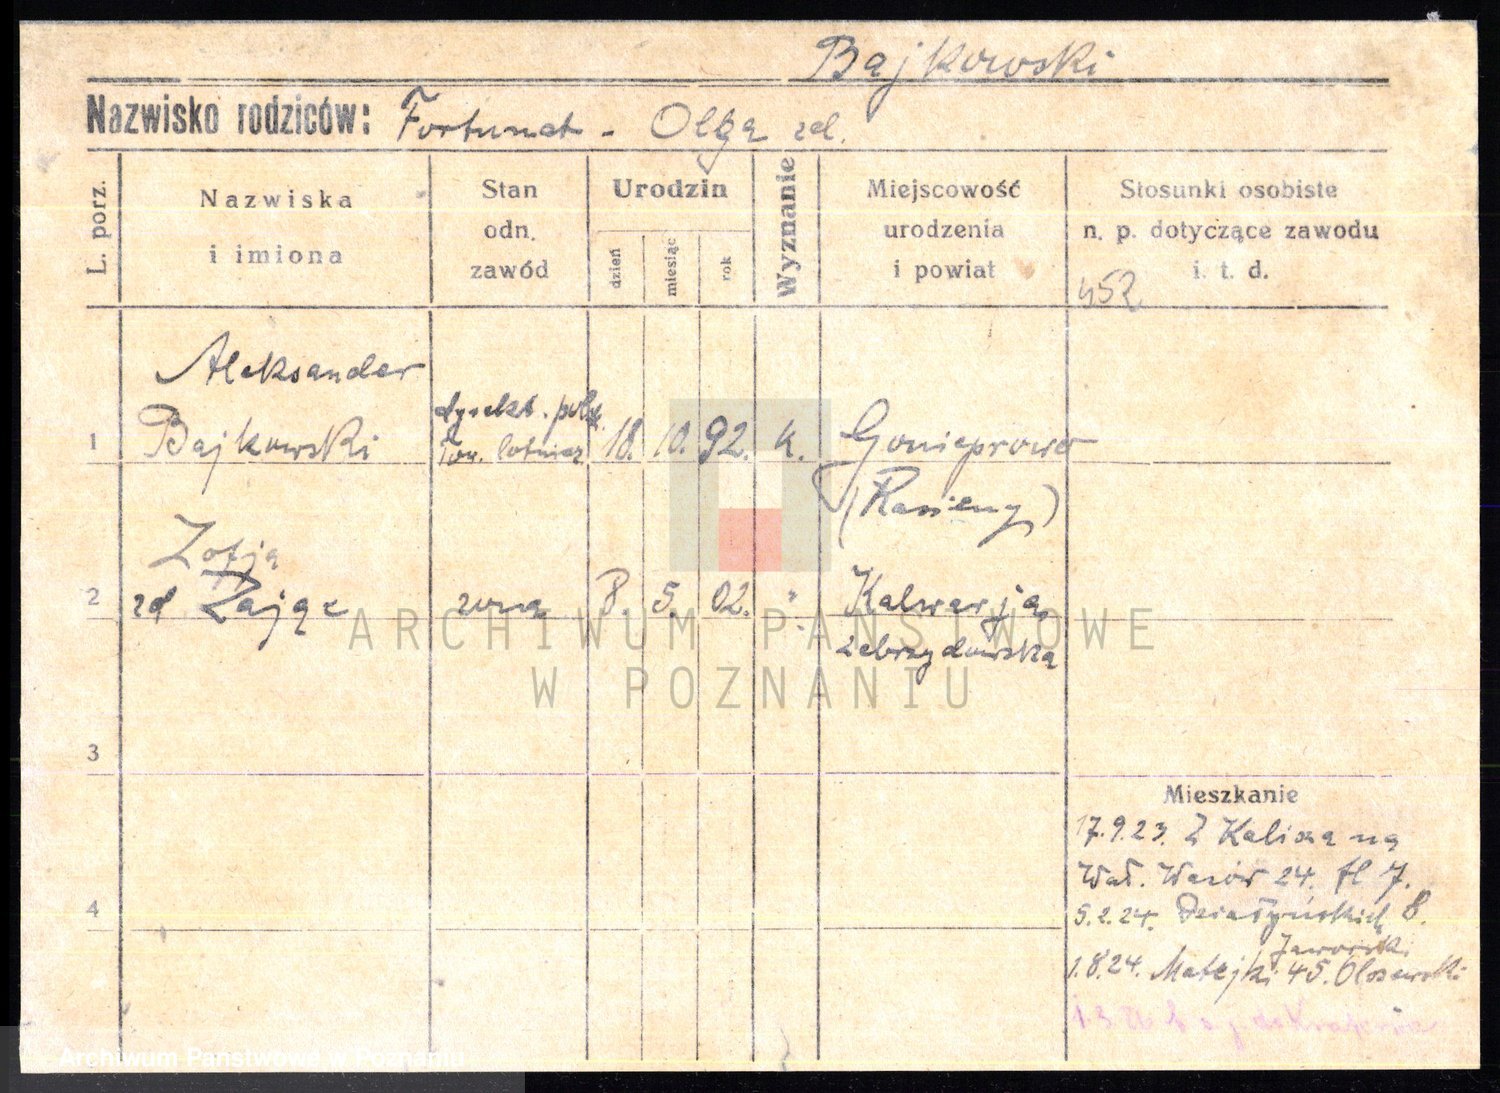 Bajkowski
Nazwisko rodziców: Fortunat - Olga zd.
L. porz.
Nazwiska
i imiona
Stan
odn.
zawód
Urodzin
dzień
miesiąc
rok
Wyznanie
Miejscowość
urodzenia
i powiat
Stosunki osobiste
n. p. dotyczące zawodu
i. t. d.
452
1
Aleksander
Bajkowski
dyrekt. polsk.
Tow. lotnicz
18. 10. 92. k.
Gonieprowo
(Rasieny)
2
Zofja
zd Zając
żona
8. 5. 02. "
Kalwarja
Zebrzydowska
3
4
Mieszkanie
17.9.23. Z Kalisza na
Wał. Wazów 24. fl 7.
5.2.24. Działyńskich 8.
Jaworski
1.8.24. Matejki 45. Olszewski
do Krakowa
ARCHIWUM PAŃSTWOWE
W POZNANIU
Archiwum Państwowe w Poznaniu